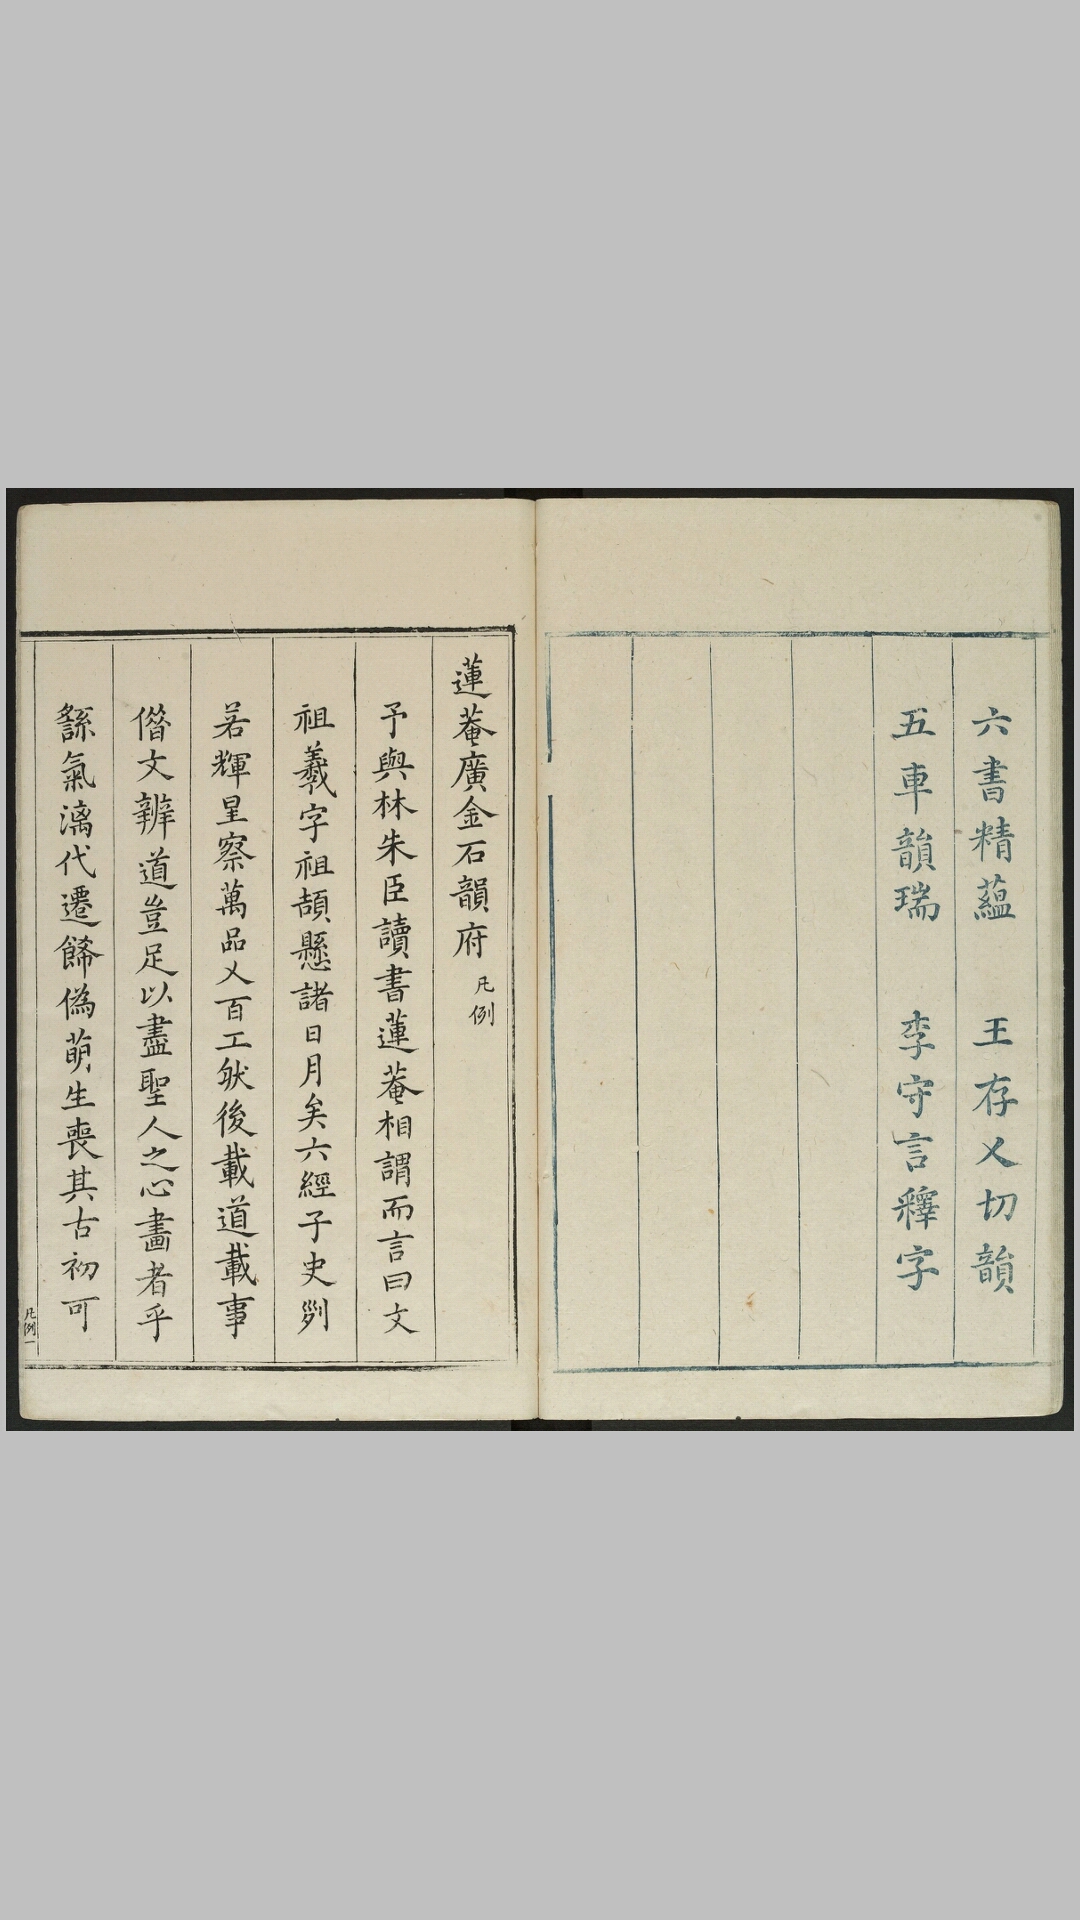 六書精蘊　王存乂切韻
五車韻瑞　李守言釋字
蓮菴廣金石韻府 凡例
予與林朱臣讀書蓮菴相謂而言曰文
祖羲字祖頡懸諸日月矣六經子史
若輝星察萬品乂百工然後載道載事
偺文辨道豈足以盡聖人之心畫者乎
氣漓代遷餙偽萌生喪其古初可
凡例一